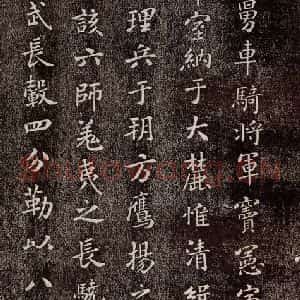 舅車騎將軍竇憲寅
室納于大麓惟清緝
理兵于朔方鷹揚之
該六師羌夷之長驍
武長轂四分勒以八